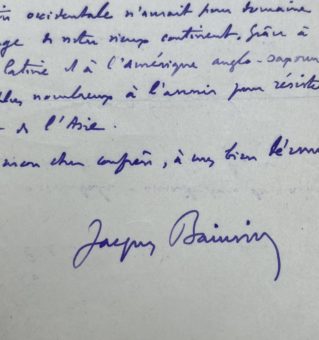 occidentale n'aurait pour domaine
de notre vieux continent. Grâce à
latine et à l'Amérique anglo-saxonne
nombreux à l'avenir pour résister
de l'Asie.
mon cher confrère, à mes bien dévoués
Jacques Bainville